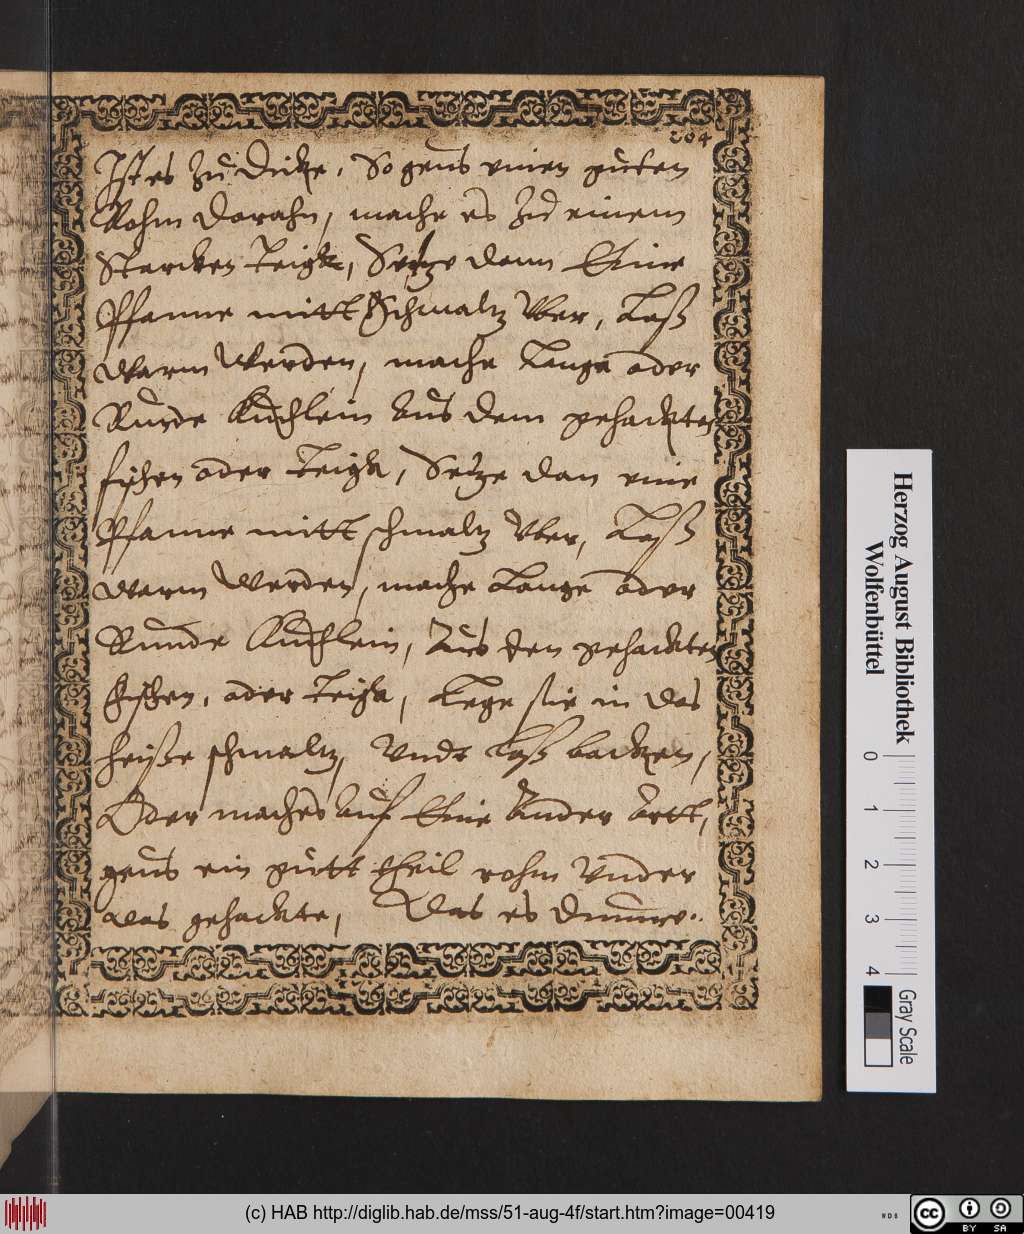 204
Ist es zu Dicke, So geus einen guten
Rohm darahn, mache es zu einem
Starcken Teigk, Setze dann Eine
Pfanne mitt Schmaltz Vber, Laß
warm Werden, mache Lange oder
Runde Küchlein Aus dem gehackten
fischen oder Teigk, Setze dan eine
Pfanne mitt schmaltz Vber, Laß
warm Werden, mache Lange oder
Runde Küchlein, Aus den gehackten
fischen, oder Teigk, Lege sie in das
heiße schmaltz, Vndt Laß backen,
Oder maches Auf Eine Ander Artt,
geus ein gutt theil rohm Vnder
das gehackte, Das es Dünne..
Herzog August Bibliothek
Wolfenbüttel
0 1 2 3 4
Gray Scale
(c) HAB http://diglib.hab.de/mss/51-aug-4f/start.htm?image=00419
WDB
cc
BY SA